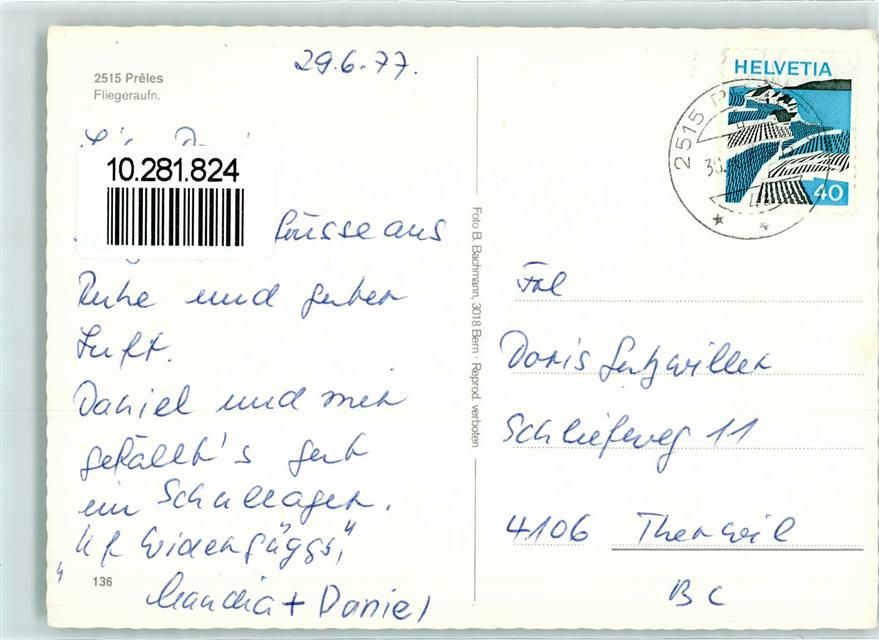 2515 Prêles
Fliegeraufn.
29.6.77.
10.281.824
aus
Ruhe und guter
Luft.
Daniel und mir
gefällt's gut
im Schullager.
"Uf Widergüggs"
Claudia + Daniel
136
Foto B. Bachmann, 3018 Bern · Reprod. verboten
HELVETIA
40
2515 P
30.
Frl
Doris Gutzwiller
Schliefweg 11
4106 Therwil
BL